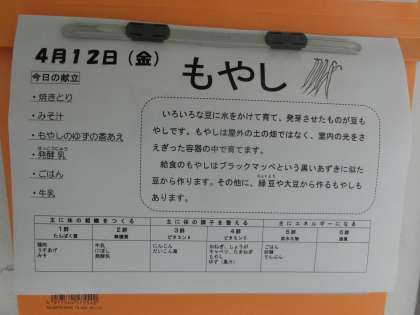 4月12日（金）
もやし
今日の献立
・焼きとり
・みそ汁
・もやしのゆずの香あえ
・発酵乳
・ごはん
・牛乳
いろいろな豆に水をかけて育て、発芽させたものが豆も
やしです。もやしは屋外の土の畑ではなく、室内の光をさ
えぎった容器の中で育てます。
給食のもやしはブラックマッペという黒いあずきに似た
豆から作ります。その他に、緑豆や大豆から作るもやしも
あります。
主に体の組織をつくる 主に体の調子を整える 主にエネルギーになる
1群 2群 3群 4群 5群 6群
たんぱく質 無機質 ビタミンA ビタミンC 炭水化物 脂質
鶏肉 牛乳 にんじん ごはん
みそ にぼし だいこん葉 キャベツ、たまねぎ 砂糖
発酵乳 もやし でんぷん
ゆず（果汁）